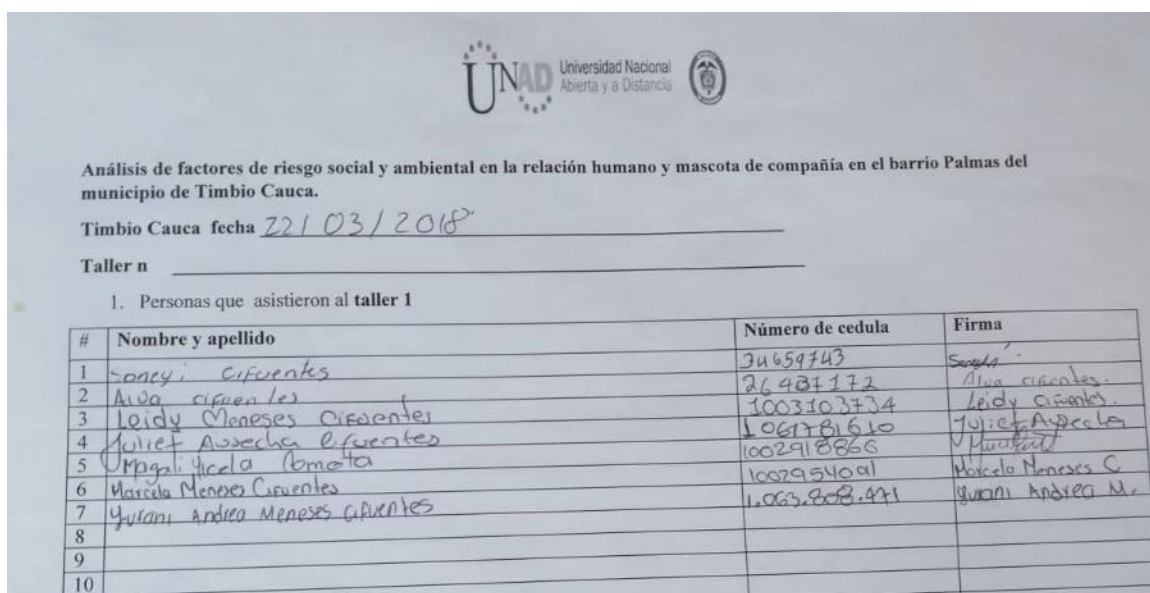 UNAD Universidad Nacional
Abierta y a Distancia
Análisis de factores de riesgo social y ambiental en la relación humano y mascota de compañía en el barrio Palmas del
municipio de Timbio Cauca.
Timbio Cauca fecha 22/03/2018
Taller n
1. Personas que asistieron al taller 1
# Nombre y apellido Número de cedula Firma
1 Soneyi Cifuentes 34659743
2 Alva cifuentes 26487172 Alva cifuentes.
3 Leidy Meneses Cifuentes 1003103734 Leidy Cifuentes.
4 Juliet Ausecha Cifuentes 1061781610 Juliet Ausecha
5 Magali Yicela Cometa 1002918866
6 Marcela Meneses Cifuentes 1002954091 Marcela Meneses C
7 Yurani Andrea Meneses Cifuentes 1.063.808.471 Yurani Andrea M.
8
9
10